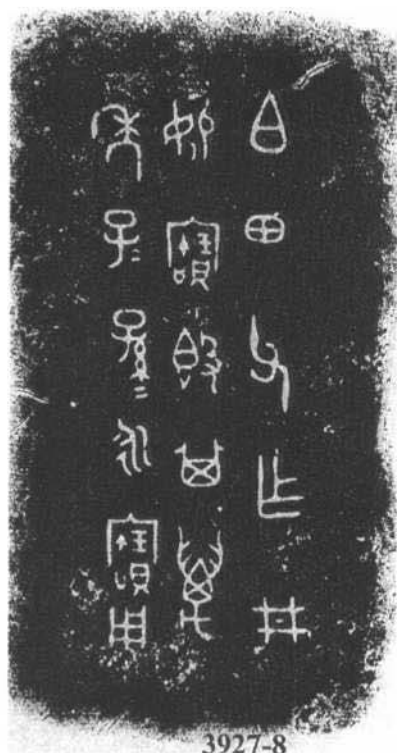 白田父乍井
寶𣪘其萬
年子＝孫＝永寶用
3927-8